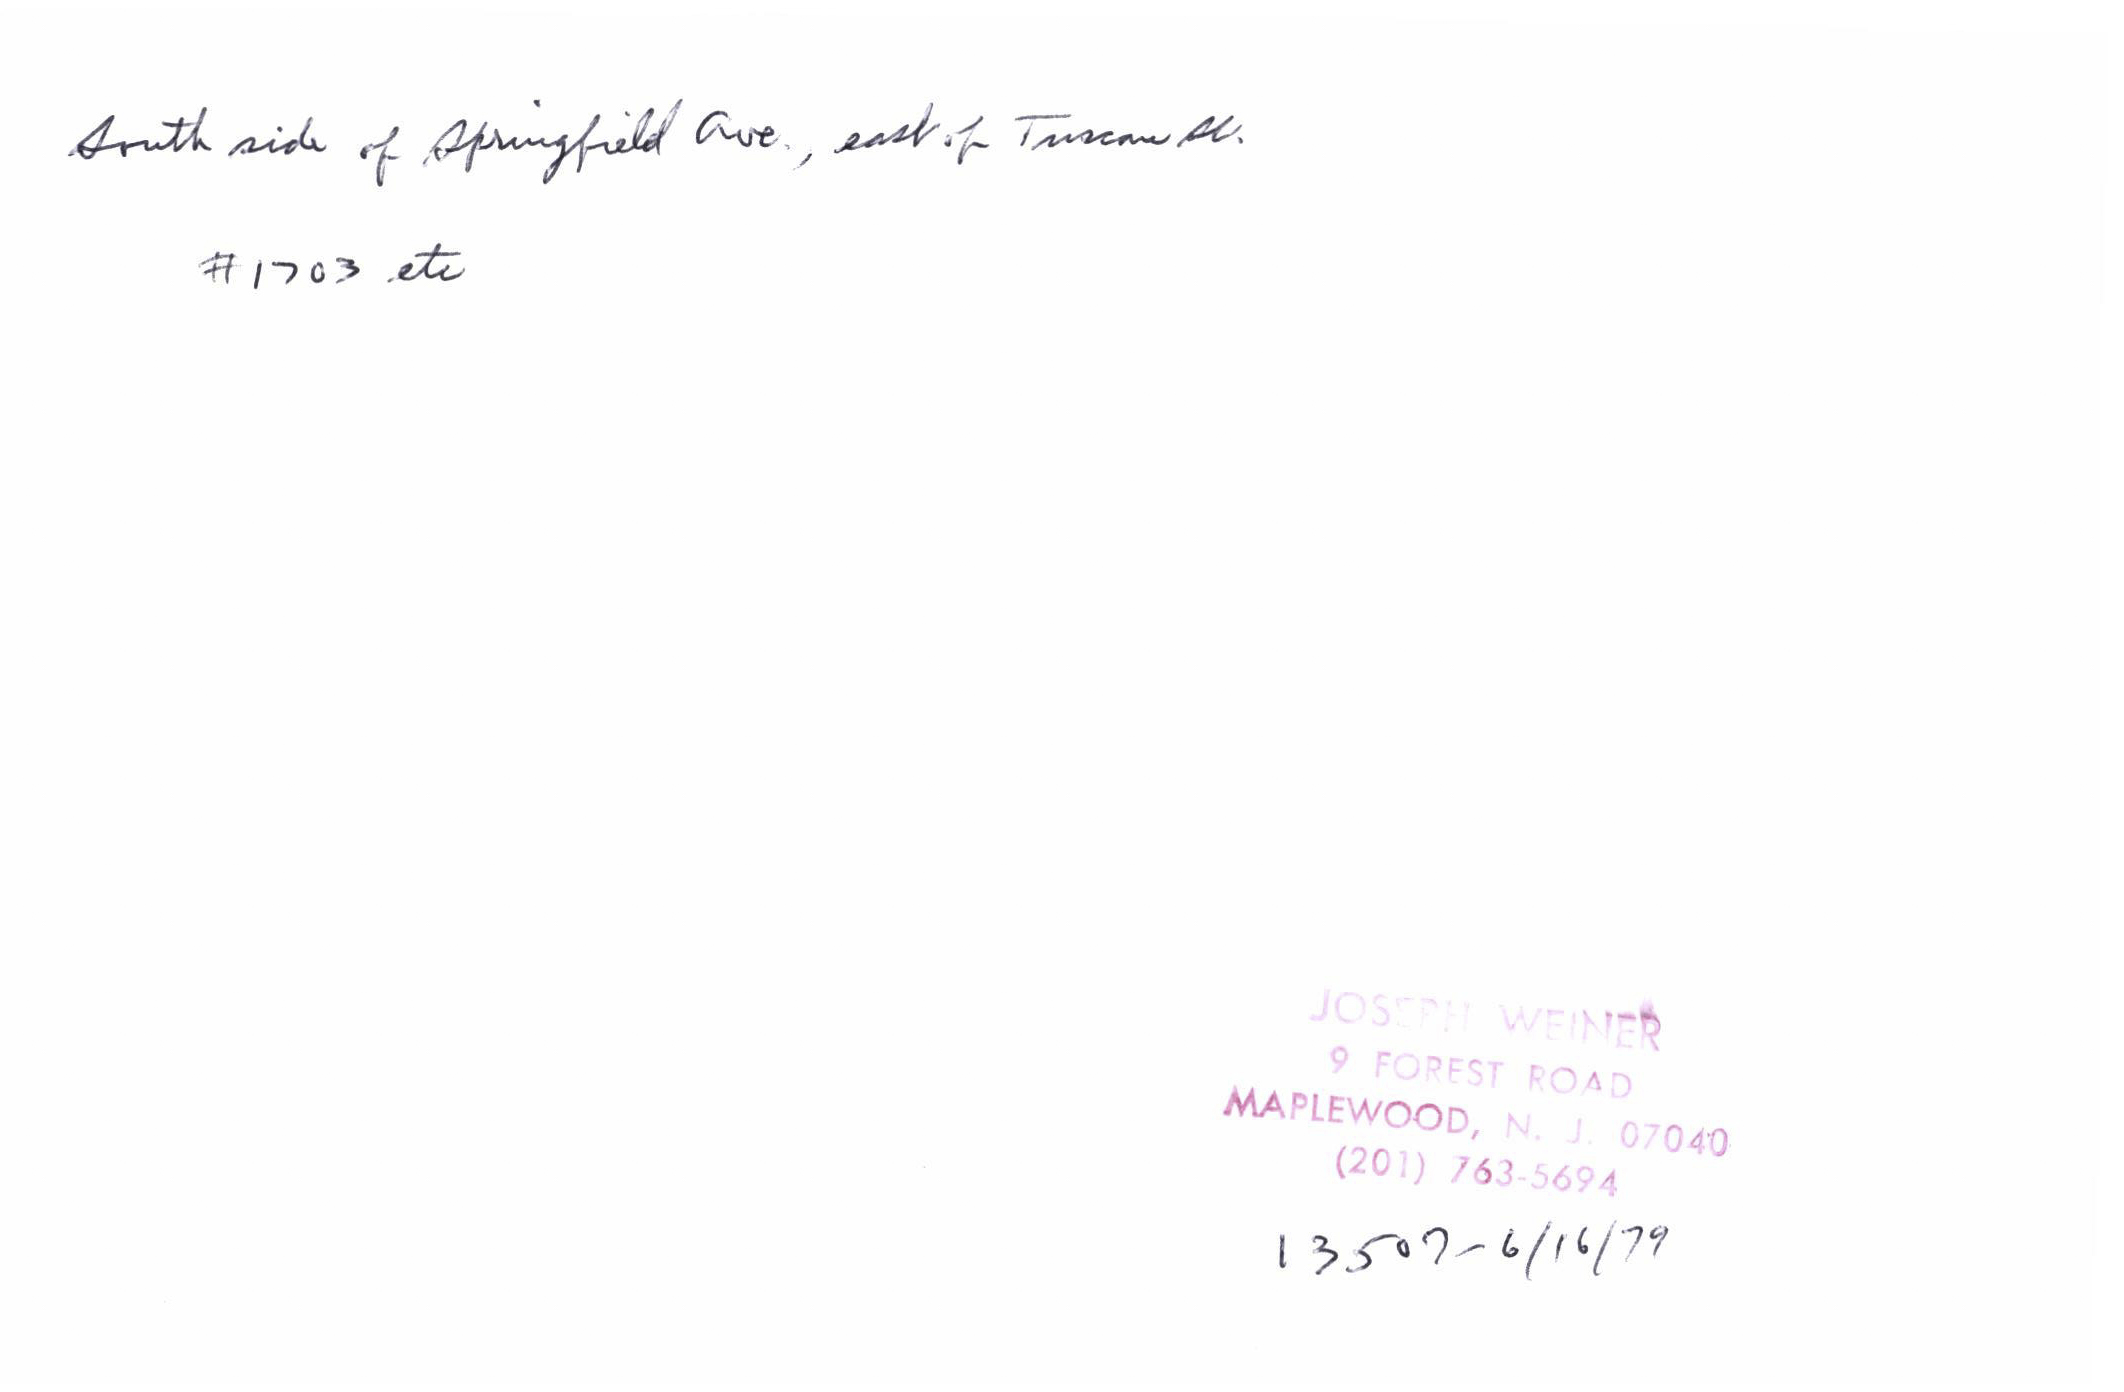 South side of Springfield Ave., east of Tuscan St.
#1703 etc
JOSEPH WEINER
9 FOREST ROAD
MAPLEWOOD, N. J. 07040
(201) 763-5694
13507-6/16/79